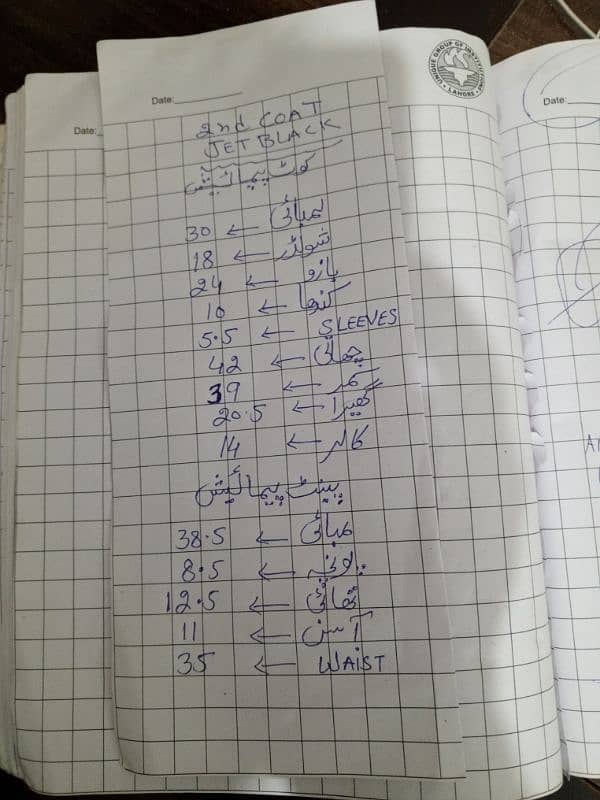 Date:
2nd COAT
JET BLACK
کوٹ پیمائیش
لمبائی ← 30
شولڈر ← 18
بازو ← 24
کندھا ← 10
SLEEVES ← 5.5
چھاتی ← 42
کمر ← 39
گھیرا ← 20.5
کالر ← 14
پینٹ پیمائیش
لمبائی ← 38.5
پانچہ ← 8.5
تھائی ← 12.5
آسن ← 11
WAIST ← 35
Date:
UNIQUE GROUP OF INSTITUTIONS
LAHORE
Date: